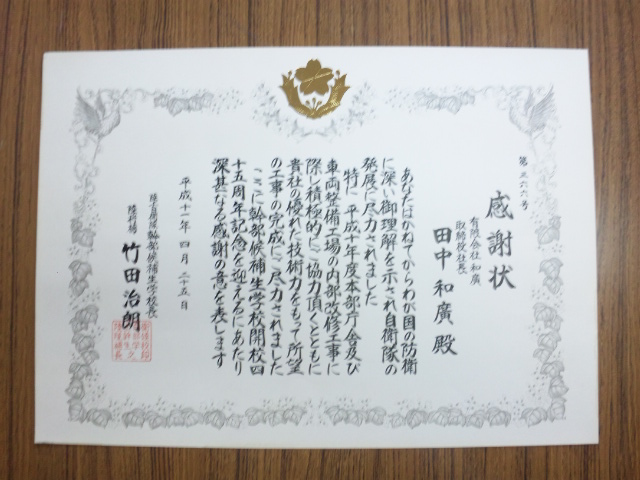 第三六六号
感謝状
有限会社和廣
取締役社長
田中和廣殿
あなたはかねてからわが国の防衛
に深い御理解を示され自衛隊の
発展に尽力されました
特に平成十年度本部庁舎及び
車両整備工場の内部改修工事に
際し積極的にご協力頂くとともに
貴社の優れた技術力をもって所望
の工事の完成にご尽力されました
ここに幹部候補生学校開校四
十五周年記念を迎えるにあたり
深甚なる感謝の意を表します
平成十一年四月二十五日
陸上自衛隊幹部候補生学校長
陸将補 竹田治朗